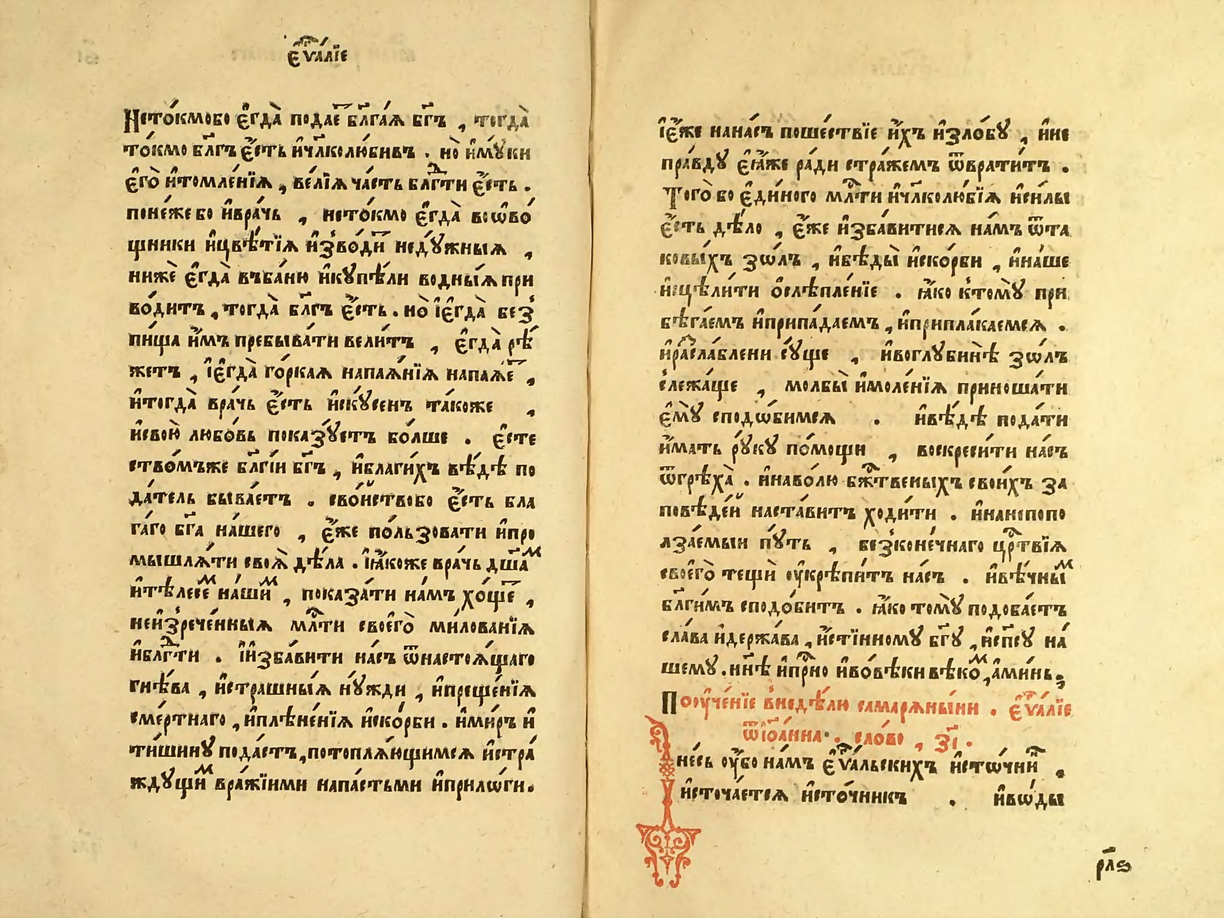 є҆ѵⷢ҇алїе
Нето́кмобо є҆гда̀ подае҇ бл҃га́ѧ бг҃ъ , тогда̀
то́кмо бл҃гъ є҆́сть и҆чл҃колю́бивъ . но̀ и҆мꙋ́ки
є҆го̀ и҆томле́нїѧ , ве́лїѧ ча́сть блгⷣти є҆́сть .
поне́же бо и҆вра́чь , нето́кмо є҆гда̀ восѡво́
щники и҆цвѣ́тїѧ и҆зво́ди҇ недꙋ́жныѧ ,
нижѐ є҆гда̀ въба́ню и҆кꙋпѣ́ли водны́ѧ при
во́дитъ , тогда̀ бл҃гъ є҆́сть . но̀ і҆є҆гда̀ без̾
пи́ща и҆̀мъ пребыва́ти вели́тъ , є҆гда̀ рѣ́
жетъ , і҆є҆гда̀ го́ркаѧ напаѧ́нїѧ напаѧ́е҇ ,
и҆тогда̀ вра́чь є҆́сть и҆скꙋ́сенъ та́коже ,
и҆свою̀ любо́вь пока́зꙋетъ бо́лше . є҆сте
ство́мъже бл҃гі́и бг҃ъ , и҆благи́хъ всѣ́дѣ по
да́тель быва́етъ . сво́йствобо є҆́сть бла
га́го бг҃а на́шего , є҆́же по́лзовати и҆про
мышлѧ́ти своѧ̀ дѣ́ла . і҆ꙗ҆́коже вра́чь дш҃аⷨ
и҆тѣлесе́ⷨ на́шиⷨ , показа́ти на́мъ хо́ще҇ ,
неи҆зрече́нныѧ млⷭ҇ти своего̀ ми́лованїѧ
и҆блгⷣти . і҆и҆зба́вити на́съ ѿнастоѧ́щаго
гнѣ́ва , и҆стра́шныѧ нꙋ́жди , и҆преще́нїѧ
сме́ртнаго , и҆плѣне́нїѧ и҆ско́рби . и҆ми́ръ и҆
тишинꙋ̀ пода́стъ , потоплѧ́ющимсѧ и҆стра́
ждꙋщиⷨ вра́жїими напа́стьми и҆прило́ги .
і҆є҆́же нана́съ поше́ствїе и҆́хъ и҆зло́бꙋ , и҆не
пра́вдꙋ є҆ѧ́же ради стра́жемъ ѿврати́тъ .
Того̀ бо є҆ди́ного млⷭ҇ти и҆чл҃колю́бїѧ и҆си́лы
є҆́сть дѣ́ло , є҆́же и҆зба́витисѧ на́мъ ѿта
ковы́хъ зѡ́лъ , и҆бѣды̀ и҆ско́рби , и҆на́ше
и҆сцѣли́ти ѻ҆слѣпле́нїе . ꙗ҆́ко ктомꙋ̀ при
бѣга́емъ и҆припа́даемъ , и҆припла́каемсѧ .
и҆разсла́блени сꙋ́ще , и҆воглꙋбинѣ̀ зѡ́лъ
слежа́ще , молбы̀ и҆моле́нїѧ приноша́ти
є҆мꙋ̀ сподѡ́бимсѧ . и҆всѣ́дѣ пода́ти
и҆́мать рꙋ́кꙋ по́мощи , воскреси́ти на́съ
ѿгрѣха̀ . и҆наво́лю бжⷭ҇твеныхъ свои́хъ за
повѣ́дей наста́витъ ходи́ти . и҆нанепопо
лзаемыи пꙋ́ть , безконе́чнаго црⷭ҇твїѧ
своего̀ тещѝ ᲂу҆крѣпи́тъ на́съ . и҆вѣ́чныⷨ
бл҃ги́мъ сподо́битъ . ꙗ҆́ко томꙋ̀ подоба́етъ
сла́ва и҆держа́ва , и҆́стинномꙋ бг҃ꙋ , и҆сп҃сꙋ на́
шемꙋ . нн҃ѣ и҆прⷭ҇но и҆вовѣ́ки вѣко́ⷨ , а҆ми́нь ,
Поᲂу҆че́нїе внедѣ́лю самарѧны́ни . є҆ѵⷢ҇а́лїе
ѿі҆ѡа́нна . сло́во , з҃і .
Днесь ᲂу҆́бо на́мъ є҆ѵⷢ҇а́льскихъ и҆сто́чниⷦ҇ .
и҆сточа́етсѧ и҆сто́чникъ . и҆вѡ́ды
рл҃ѕ